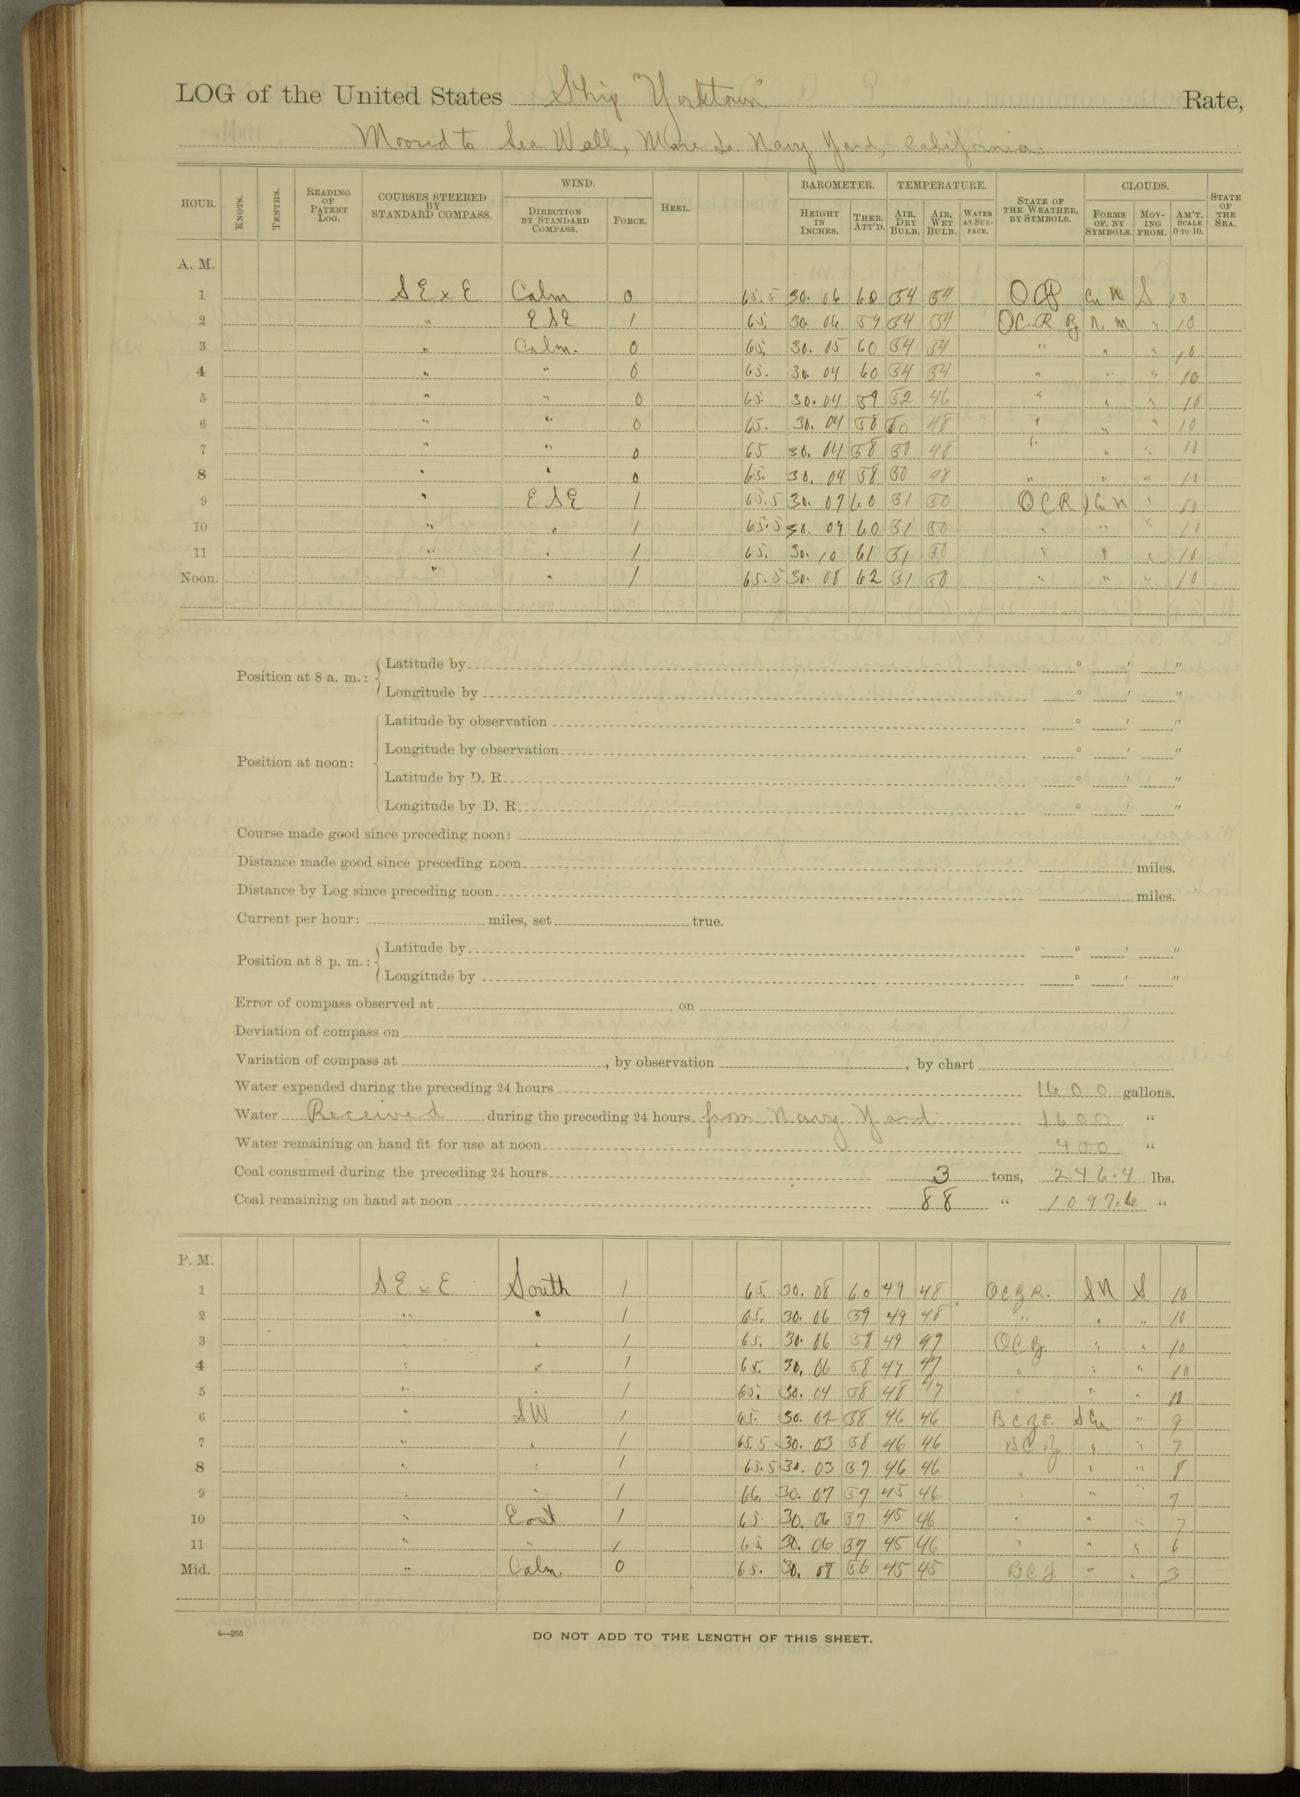 LOG of the United States Ship "Yorktown" Rate,
Moored to Sea Wall, Mare Is. Navy Yard, California.
HOUR. KNOTS. TENTHS. READING OF PATENT LOG. COURSES STEERED BY STANDARD COMPASS. WIND. DIRECTION BY STANDARD COMPASS. FORCE. HEEL. BAROMETER. HEIGHT IN INCHES. THER. ATT'D. TEMPERATURE. AIR, DRY BULB. AIR, WET BULB. WATER AT SURFACE. STATE OF THE WEATHER, BY SYMBOLS. CLOUDS. FORMS OF, BY SYMBOLS. MOVING FROM. AM'T. SCALE 0 TO 10. STATE OF THE SEA.
A. M.
1 SE x E Calm 0 65.5 30.06 60 54 54 Cu N S 10
2 " ESE 1 65. 30 06 59 54 54 " 10
3 " Calm. 0 65. 30.05 60 54 54 " " " 10
4 " " 0 65. 30 04 60 54 54 " " " 10
5 " " 0 65 30.04 59 52 46 " " " 10
6 " " 0 65. 30.04 58 50 48 " " " 10
7 " " 0 65 30.04 58 50 48 " " " 10
8 " " 0 65. 30.04 58 50 48 " " " 10
9 " ESE 1 65.5 30.07 60 51 50 OCR " 10
10 " " 1 65.5 30.09 60 51 50 " " " 10
11 " " 1 65. 30.10 61 51 50 " " " 10
Noon. " " 1 65.5 30.08 62 51 50 " " " 10
Position at 8 a. m.: Latitude by ° ' "
Longitude by ° ' "
Position at noon: Latitude by observation ° ' "
Longitude by observation ° ' "
Latitude by D. R. ° ' "
Longitude by D. R. ° ' "
Course made good since preceding noon:
Distance made good since preceding noon miles.
Distance by Log since preceding noon miles.
Current per hour: miles, set true.
Position at 8 p. m.: Latitude by ° ' "
Longitude by ° ' "
Error of compass observed at , on
Deviation of compass on
Variation of compass at , by observation , by chart
Water expended during the preceding 24 hours 1600 gallons.
Water Received during the preceding 24 hours from Navy Yard 1600 "
Water remaining on hand fit for use at noon 400 "
Coal consumed during the preceding 24 hours 3 tons, 246.4 lbs.
Coal remaining on hand at noon 88 " 1097.6 "
P. M.
1 SE x E South 1 65. 30.08 60 49 48 OCZR. SN S 10
2 " " 1 65. 30.06 59 49 48 " " " 10
3 " " 1 65. 30.06 58 49 47 OCZ " " 10
4 " " 1 65. 30.06 58 49 47 " " " 10
5 " " 1 65. 30.04 58 48 47 " " " 10
6 " SW 1 65. 30. 58 46 46 SCu " 9
7 " " 1 65.5 30.03 58 46 46 BCZ " " 7
8 " " 1 65.5 30.03 57 46 46 " " " 8
9 " " 1 66. 30.07 57 45 46 " " " 7
10 " East 1 65. 30.06 57 45 46 " " " 7
11 " " 1 65. 30.06 57 45 46 " " " 6
Mid. " Calm. 0 65. 30.08 56 45 45 BCZ " " 3
4—265
DO NOT ADD TO THE LENGTH OF THIS SHEET.